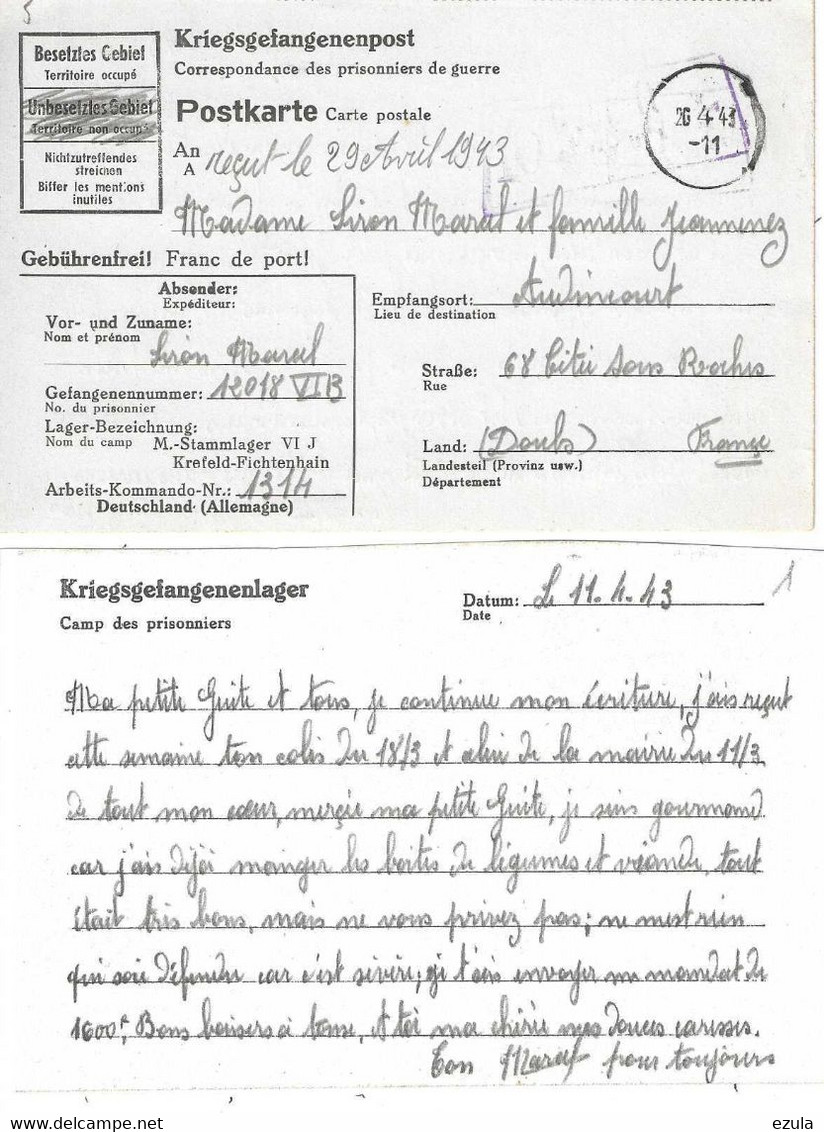 5
Besetztes Gebiet
Territoire occupé
Unbesetztes Gebiet
Territoire non occupé
Nichtzutreffendes
streichen
Biffer les mentions
inutiles
Kriegsgefangenenpost
Correspondance des prisonniers de guerre
Postkarte Carte postale
26.4.43
-11
An
A
reçut le 29 Avril 1943
Madame Siron Marcel et famille Jeannenez
Gebührenfrei! Franc de port!
Absender:
Expéditeur:
Vor- und Zuname:
Nom et prénom
Siron Marcel
Gefangenennummer: 12018 VI B
No. du prisonnier
Lager-Bezeichnung:
Nom du camp M.-Stammlager VI J
Krefeld-Fichtenhain
Arbeits-Kommando-Nr.: 1314
Deutschland (Allemagne)
Empfangsort: Audincourt
Lieu de destination
Straße: 68 Citée sous Roches
Rue
Land: (Doubs) France
Landesteil (Provinz usw.)
Département
Kriegsgefangenenlager
Camp des prisonniers
Datum: Le 11.4.43
Date
1
Ma petite Guite et tous, je continue mon écriture, j'ais reçut
cette semaine ton colis du 18/3 et celui de la mairie du 11/3
de tout mon cœur, merçie ma petite Guite, je suis gourmand
car j'ais déjà mainger les boites de légumes et viande, tout
était très bons, mais ne vous privez pas; ne mest rien
qui soie défendu car c'est sivire; je t'ais envoyer un mandat de
1600f, Bons baisers à touse, et toi ma chérie mes douces caresses.
Ton Marcel pour toujours
delcampe.net
ezula